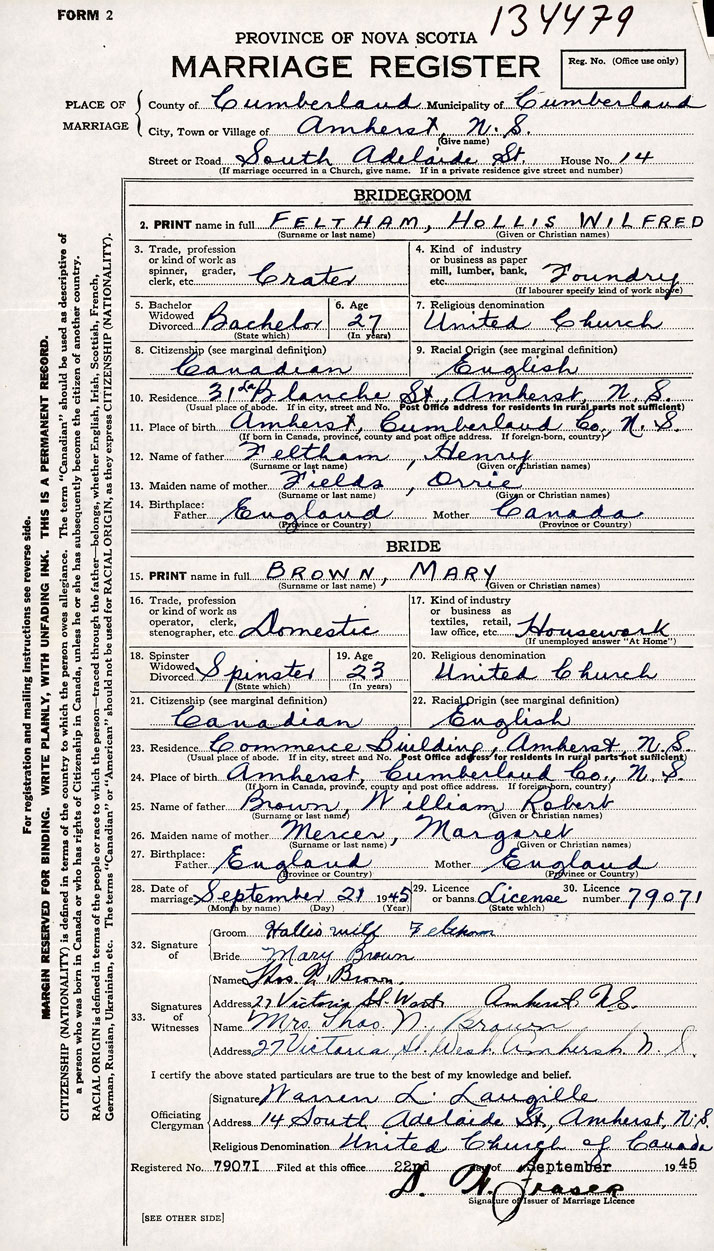 FORM 2
134479
PROVINCE OF NOVA SCOTIA
MARRIAGE REGISTER
Reg. No. (Office use only)
PLACE OF MARRIAGE
County of Cumberland Municipality of Cumberland
City, Town or Village of Amherst, N.S.
(Give name)
Street or Road South Adelaide St. House No. 14
(If marriage occurred in a Church, give name. If in a private residence give street and number)
BRIDEGROOM
2. PRINT name in full FELTHAM, HOLLIS WILFRED
(Surname or last name) (Given or Christian names)
3. Trade, profession or kind of work as spinner, grader, clerk, etc. Crater
4. Kind of industry or business as paper mill, lumber, bank, etc. Foundry
(If labourer specify kind of work above)
5. Bachelor Widowed Divorced Bachelor
(State which)
6. Age 27
(In years)
7. Religious denomination
United Church
8. Citizenship (see marginal definition)
Canadian
9. Racial Origin (see marginal definition)
English
10. Residence 31 Blanche St., Amherst, N.S.
(Usual place of abode. If in city, street and No. Post Office address for residents in rural parts not sufficient)
11. Place of birth Amherst, Cumberland Co., N.S.
(If born in Canada, province, county and post office address. If foreign-born, country)
12. Name of father Feltham, Henry
(Surname or last name) (Given or Christian names)
13. Maiden name of mother Fields, Orrie
(Surname or last name) (Given or Christian names)
14. Birthplace: Father England Mother Canada
(Province or Country) (Province or Country)
BRIDE
15. PRINT name in full BROWN, MARY
(Surname or last name) (Given or Christian names)
16. Trade, profession or kind of work as operator, clerk, stenographer, etc. Domestic
17. Kind of industry or business as textiles, retail, law office, etc. Housework
(If unemployed answer "At Home")
18. Spinster Widowed Divorced Spinster
(State which)
19. Age 23
(In years)
20. Religious denomination
United Church
21. Citizenship (see marginal definition)
Canadian
22. Racial Origin (see marginal definition)
English
23. Residence Commerce Building, Amherst, N.S.
(Usual place of abode. If in city, street and No. Post Office address for residents in rural parts not sufficient)
24. Place of birth Amherst, Cumberland Co., N.S.
(If born in Canada, province, county and post office address. If foreign-born, country)
25. Name of father Brown, William Robert
(Surname or last name) (Given or Christian names)
26. Maiden name of mother Mercer, Margaret
(Surname or last name) (Given or Christian names)
27. Birthplace: Father England Mother England
(Province or Country) (Province or Country)
28. Date of marriage September 21 1945
(Month by name) (Day) (Year)
29. Licence or banns License
(State which)
30. Licence number 79071
32. Signature of
Groom Hollis Wilf Feltham
Bride Mary Brown
33. Signatures of Witnesses
Name Thos. N. Brown.
Address 27 Victoria St. West Amherst N.S.
Name Mrs. Thos. N. Brown
Address 27 Victoria St. West. Amherst N.S.
I certify the above stated particulars are true to the best of my knowledge and belief.
Officiating Clergyman
Signature Warren L. Langille
Address 14 South Adelaide St., Amherst, N.S.
Religious Denomination United Church of Canada
Registered No. 79071 Filed at this office 22nd day of September 1945
D. W. Fraser
Signature of Issuer of Marriage Licence
[SEE OTHER SIDE]
For registration and mailing instructions see reverse side.
MARGIN RESERVED FOR BINDING. WRITE PLAINLY, WITH UNFADING INK. THIS IS A PERMANENT RECORD.
CITIZENSHIP (NATIONALITY) is defined in terms of the country to which the person owes allegiance. The term "Canadian" should be used as descriptive of
a person who was born in Canada or who has rights of Citizenship in Canada, unless he or she has subsequently become the citizen of another country.
RACIAL ORIGIN is defined in terms of the people or race to which the person—traced through the father—belongs, whether English, Irish, Scottish, French,
German, Russian, Ukrainian, etc. The terms "Canadian" or "American" should not be used for RACIAL ORIGIN, as they express CITIZENSHIP (NATIONALITY).